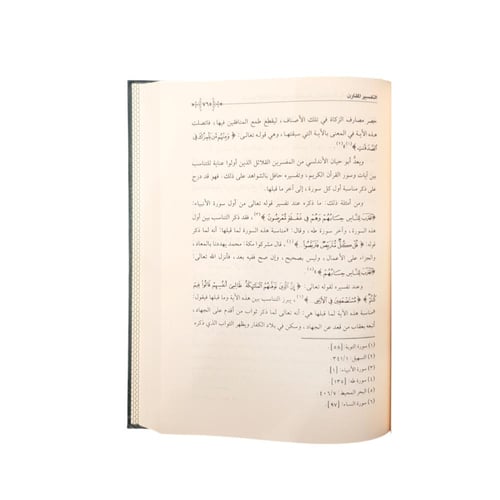 التفسير المقارن
﴿٧٦٨﴾
حصر مصارف الزكاة في تلك الأصناف، ليقطع طمع المنافقين فيها، فاتصلت
هذه الآية في المعنى بالآية التي سبقتها، وهي قوله تعالى: ﴿ وَمِنْهُم مَّن يَلْمِزُكَ فِي
الصَّدَقَاتِ ﴾(١)(٢).
ويعدُّ أبو حيان الأندلسي من المفسرين القلائل الذين أولوا عناية للتناسب
بين آيات وسور القرآن الكريم، وتفسيره حافل بالشواهد على ذلك، فهو قد درج
على ذكر مناسبة أول كل سورة، إلى آخر ما قبلها.
ومن أمثلة ذلك: ما ذكره عند تفسير قوله تعالى من أول سورة الأنبياء:
﴿اقْتَرَبَ لِلنَّاسِ حِسَابُهُمْ وَهُمْ فِي غَفْلَةٍ مُّعْرِضُونَ ﴾(٣)، فقد ذكر التناسب بين أول
هذه السورة، وآخر سورة طه، وقال: «مناسبة هذه السورة لما قبلها: أنه لما ذكر
قوله: ﴿ قُلْ كُلٌّ مُّتَرَبِّصٌ فَتَرَبَّصُوا ﴾(٤)، قال مشركوا مكة: محمد يهددنا بالمعاد،
والجزاء على الأعمال، وليس بصحيح، وإن صح ففيه بعد، فأنزل الله تعالى:
﴿اقْتَرَبَ لِلنَّاسِ حِسَابُهُمْ ﴾»(٥).
وعند تفسيره لقوله تعالى: ﴿ إِنَّ الَّذِينَ تَوَفَّاهُمُ الْمَلَائِكَةُ ظَالِمِي أَنفُسِهِمْ قَالُوا فِيمَ
كُنتُمْ قَالُوا كُنَّا مُسْتَضْعَفِينَ فِي الْأَرْضِ ﴾(٦)، يبرز التناسب بين هذه الآية وما قبلها فيقول:
«مناسبة هذه الآية لما قبلها هي: أنه تعالى لما ذكر ثواب من أقدم على الجهاد،
أتبعه بعقاب من قعد عن الجهاد، وسكن في بلاد الكفار ويظهر الثواب الذي ذكره
(١) سورة التوبة: [٥٨].
(٢) التسهيل: ٣٤١/١.
(٣) سورة الأنبياء: [١].
(٤) سورة طه: [١٣٥].
(٥) البحر المحيط: ٤٠٦/٧.
(٦) سورة النساء: [٩٧].